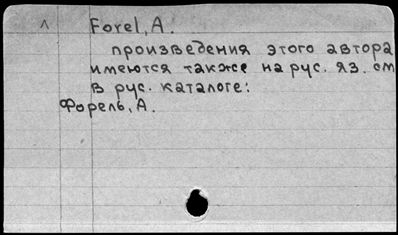 ^ Forel, A.
произведения этого автора
имеются также на рус. яз. см
в рус. каталоге:
Форель, А.